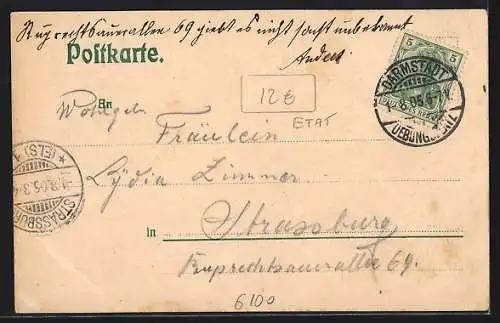 Ruprechtsauerallee 69 giebt es nicht sonst unbekannt
Anders
Postkarte.
5 5
DARMSTADT
1.8.05
UEBUNGSPLATZ
An
12 €
ETAT
Wohlgeb.
Fräulein
Lydia Zimmer
STRASSBURG
1.8.05.3-4
* (ELS) 1
in
Strassburg
Ruprechtsauerallee 69.
6100